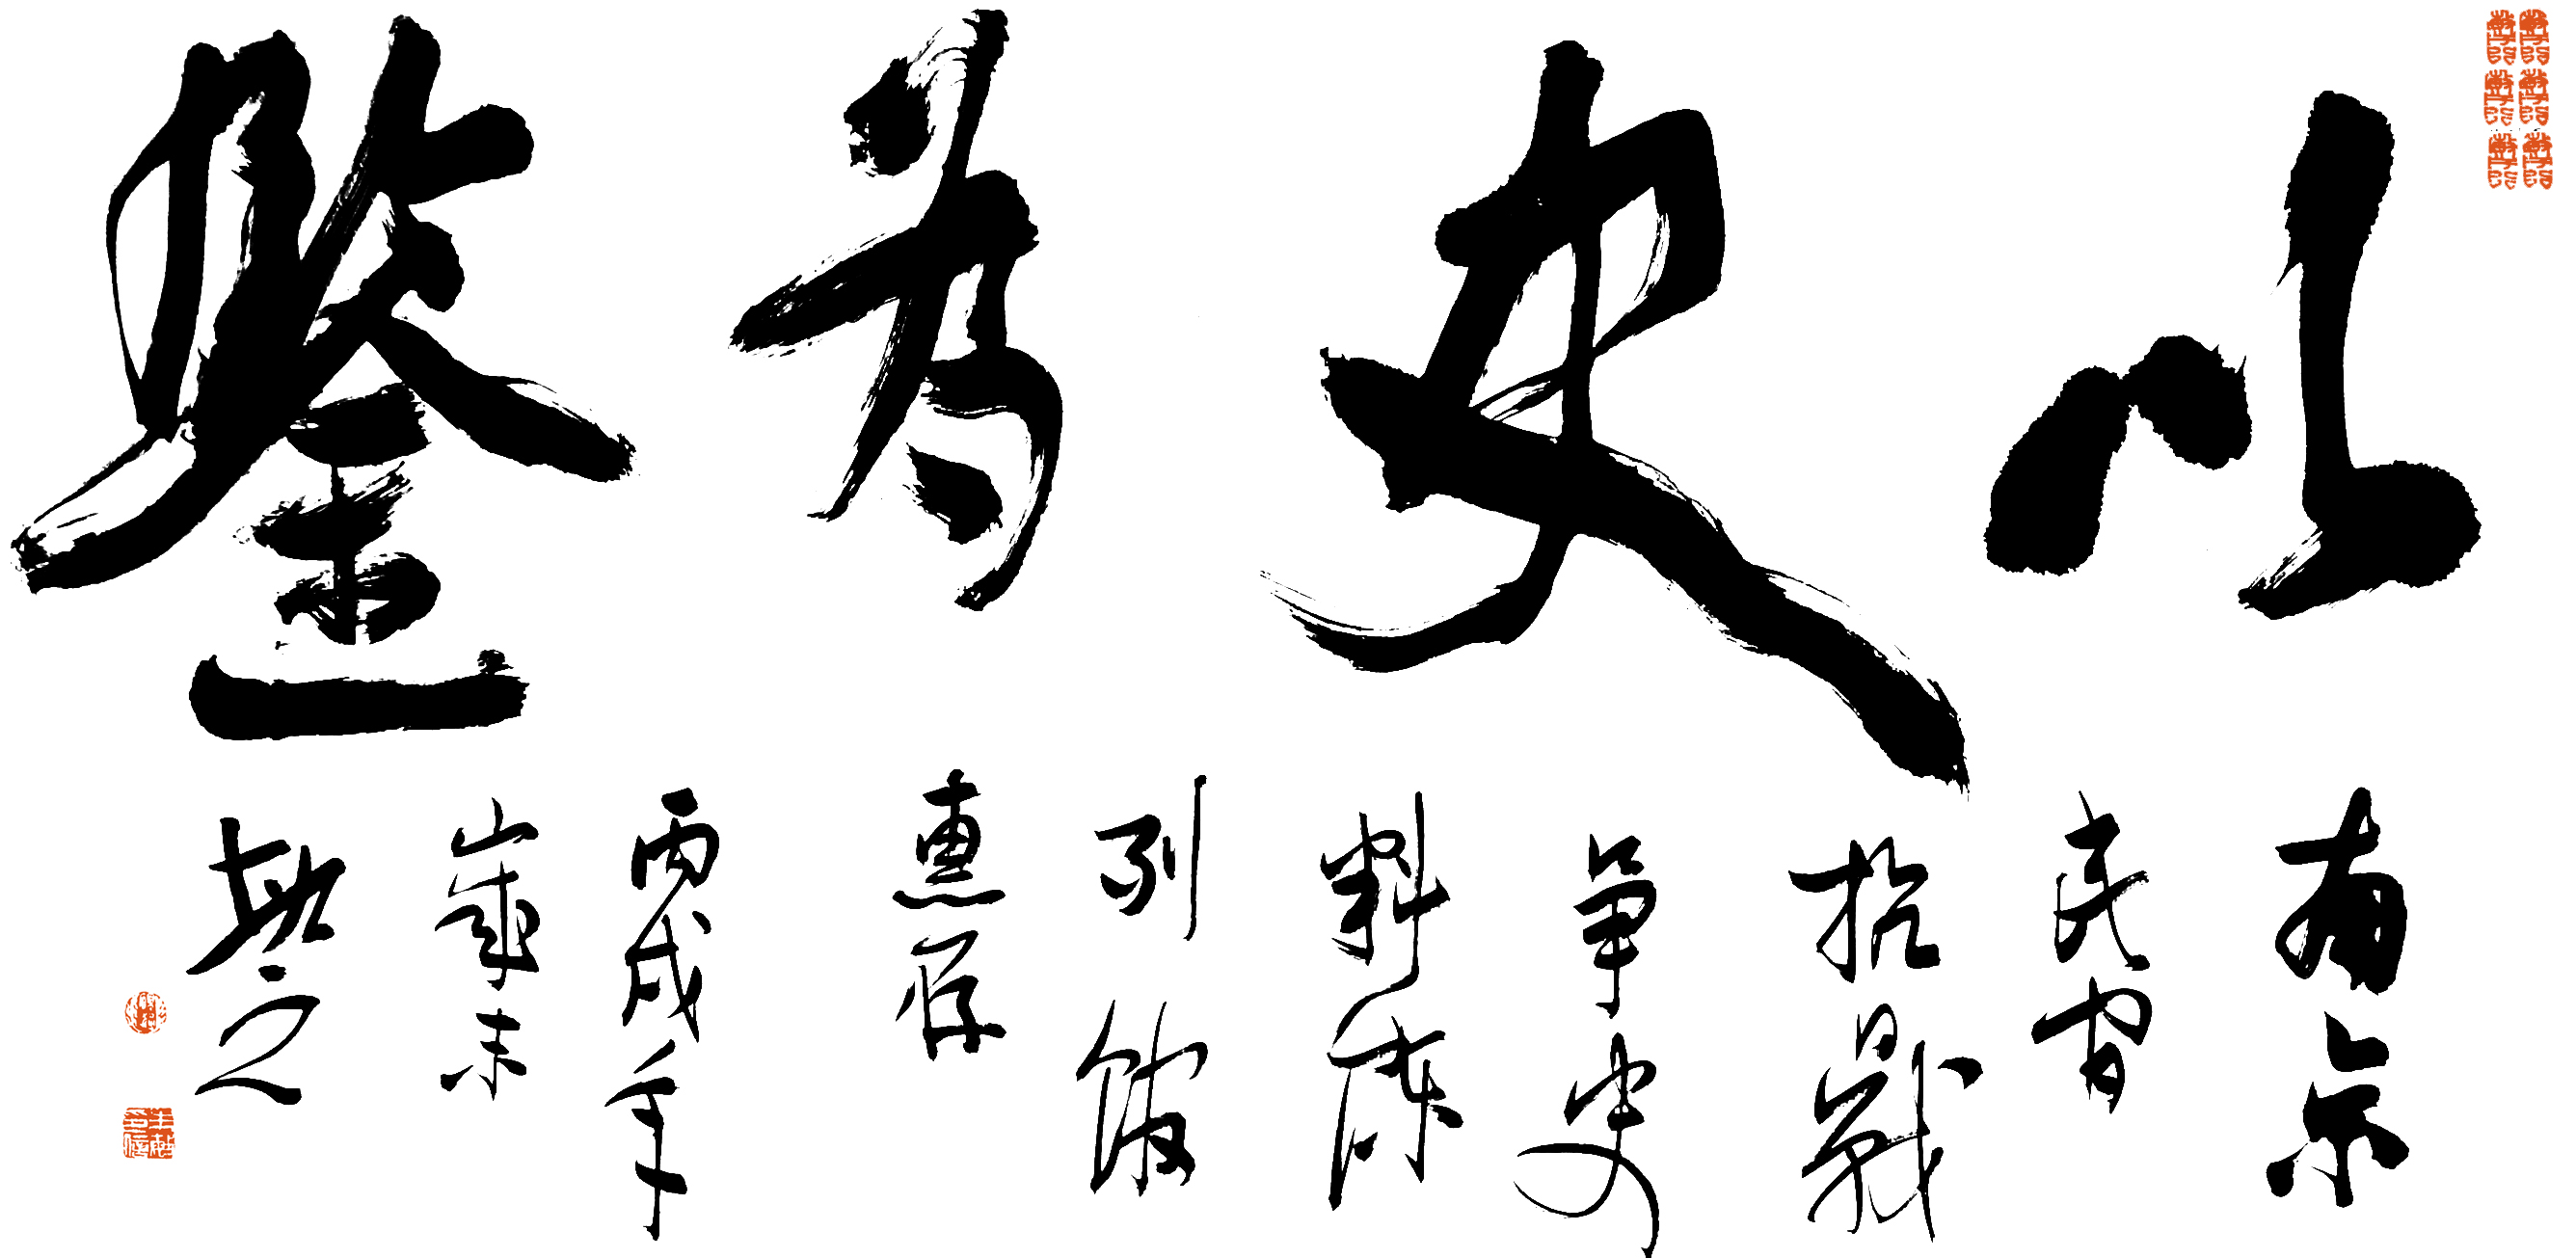 以史为鉴
南京
民间
抗戰
争史
料陈
列馆
惠存
丙戌年
歲末